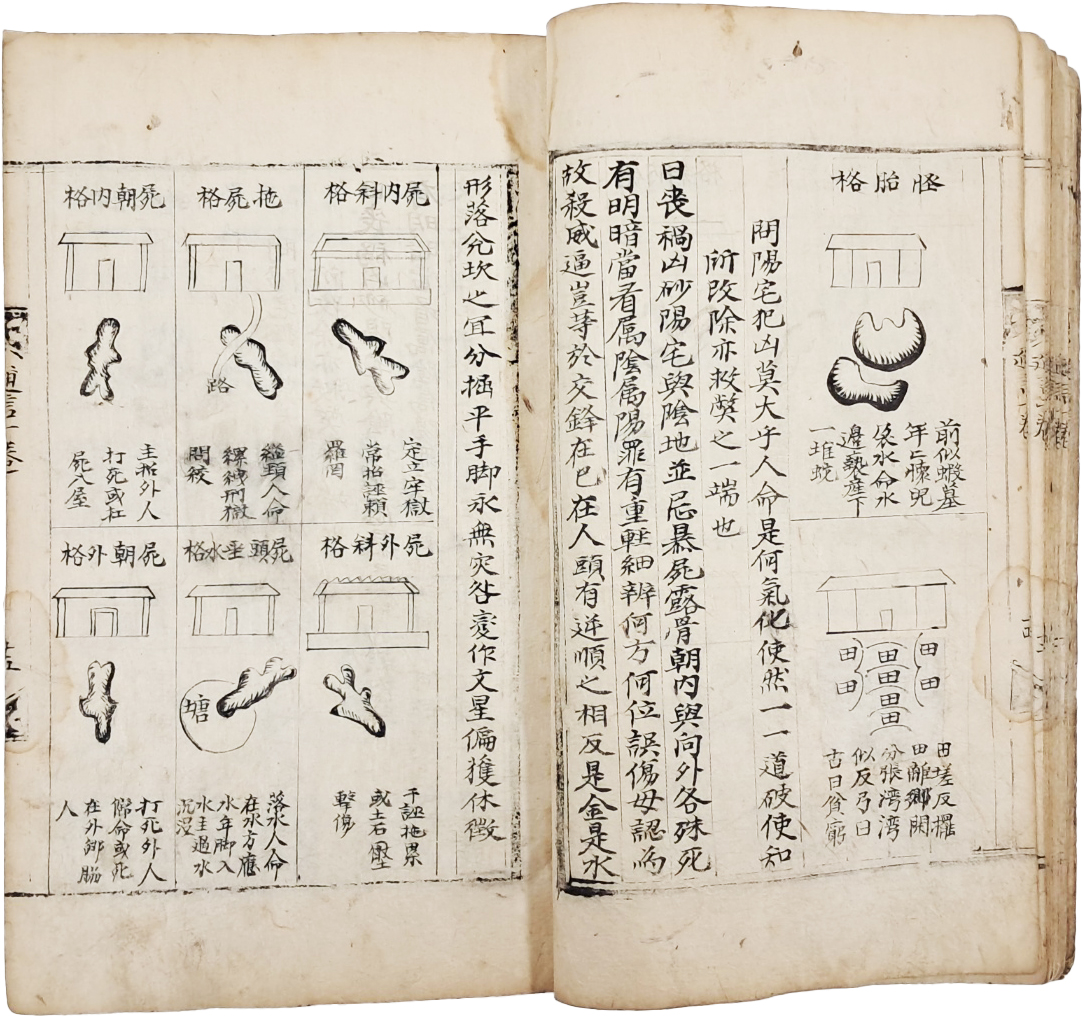 怪胎格
前似蝦蟇
年亡懷児
依水命水
邊藝產下
一堆蚖
田墶反擺
田離鄉閞
分張湾湾
似反弓日
古日貧窮
閗陽宅犯凶莫大乎人命是何氣化使然一一道破使知
所改除亦救獘之一端也
曰丧禍凶砂陽宅與陰地並忌暴屍露骨朝內與向外各殊死
有明暗當看属陰属陽罪有重輕細辨何方何位誤傷毋認為
故殺威逼豈等於交鋒在巳在人頭有逆順之相反是金是水
形落兊坎之冝分掘平手脚永無灾咎变作文星偏獲休徵
屍內斜格
定立牢獄
常招誣頼
羅罔
拖屍格
路
縊頸人命
縲絏刑獄
閗絞
屍朝內格
主招外人
打死或扛
屍入屋
屍外斜格
干誣拖累
或土石壓
擊傷
屍頭垂水格
塘
落水人命
在水方應
水年脚入
水主過水
沉没
屍朝外格
打死外人
償命或死
在外鄉脳
人